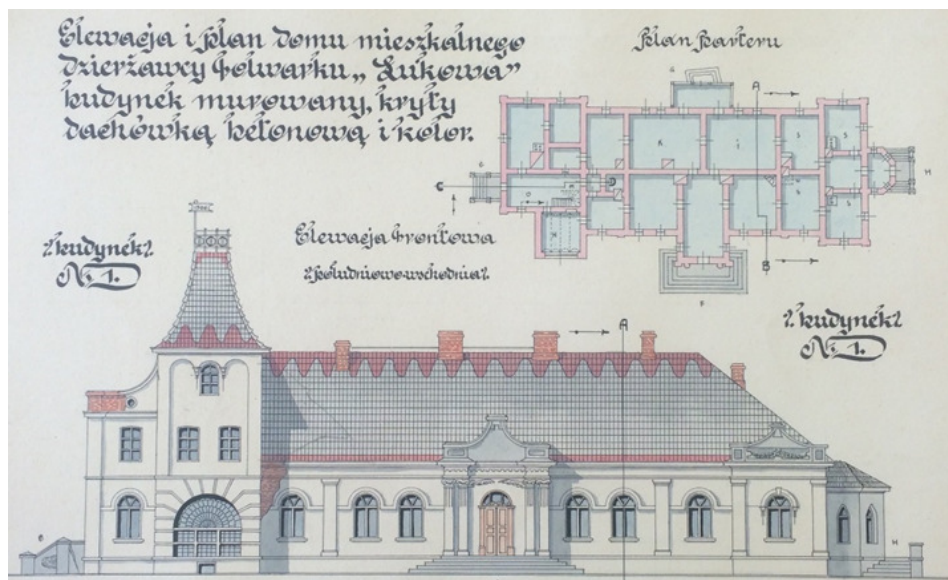 Elewacja i plan domu mieszkalnego
dzierżawcy folwarku „Łukowa”
budynek murowany, kryty
dachówką betonową i kolor.
Plan Parteru
G
A
G
H
C
D
B
F
Elewacja frontowa
południowo-wschodnia
budynek
№ 1.
budynek
№ 1.
A
G
H